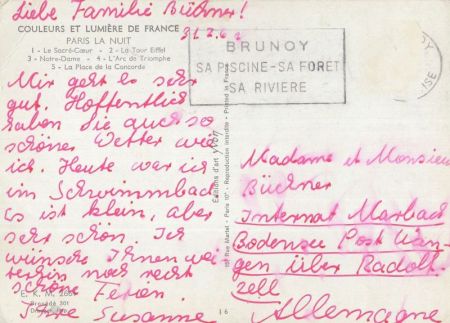 Liebe Familie Büchner!
COULEURS ET LUMIÈRE DE FRANCE
PARIS LA NUIT
1 - Le Sacré-Cœur - 2 - La Tour Eiffel
3 - Notre-Dame - 4 - L'Arc de Triomphe
5 - La Place de la Concorde
Mir geht es sehr
gut. Hoffentlich
haben Sie auch so
schönes Wetter wie
ich. Heute war ich
im Schwimmbad.
Es ist klein, aber
sehr schön. Ich
wünsche Ihnen wei
terhin noch recht
schöne Ferien.
Ihre Susanne
E. K. M. 266
Editions d'art YVON
15, Rue Martel - Paris 10e - Reproduction interdite - Printed in France
16
BRUNOY
SA PISCINE - SA FORET
SA RIVIERE
Madame et Monsieur
Büchner
Internat Marbach
Bodensee Post Wan-
gen über Radolf-
zell
Allemagne